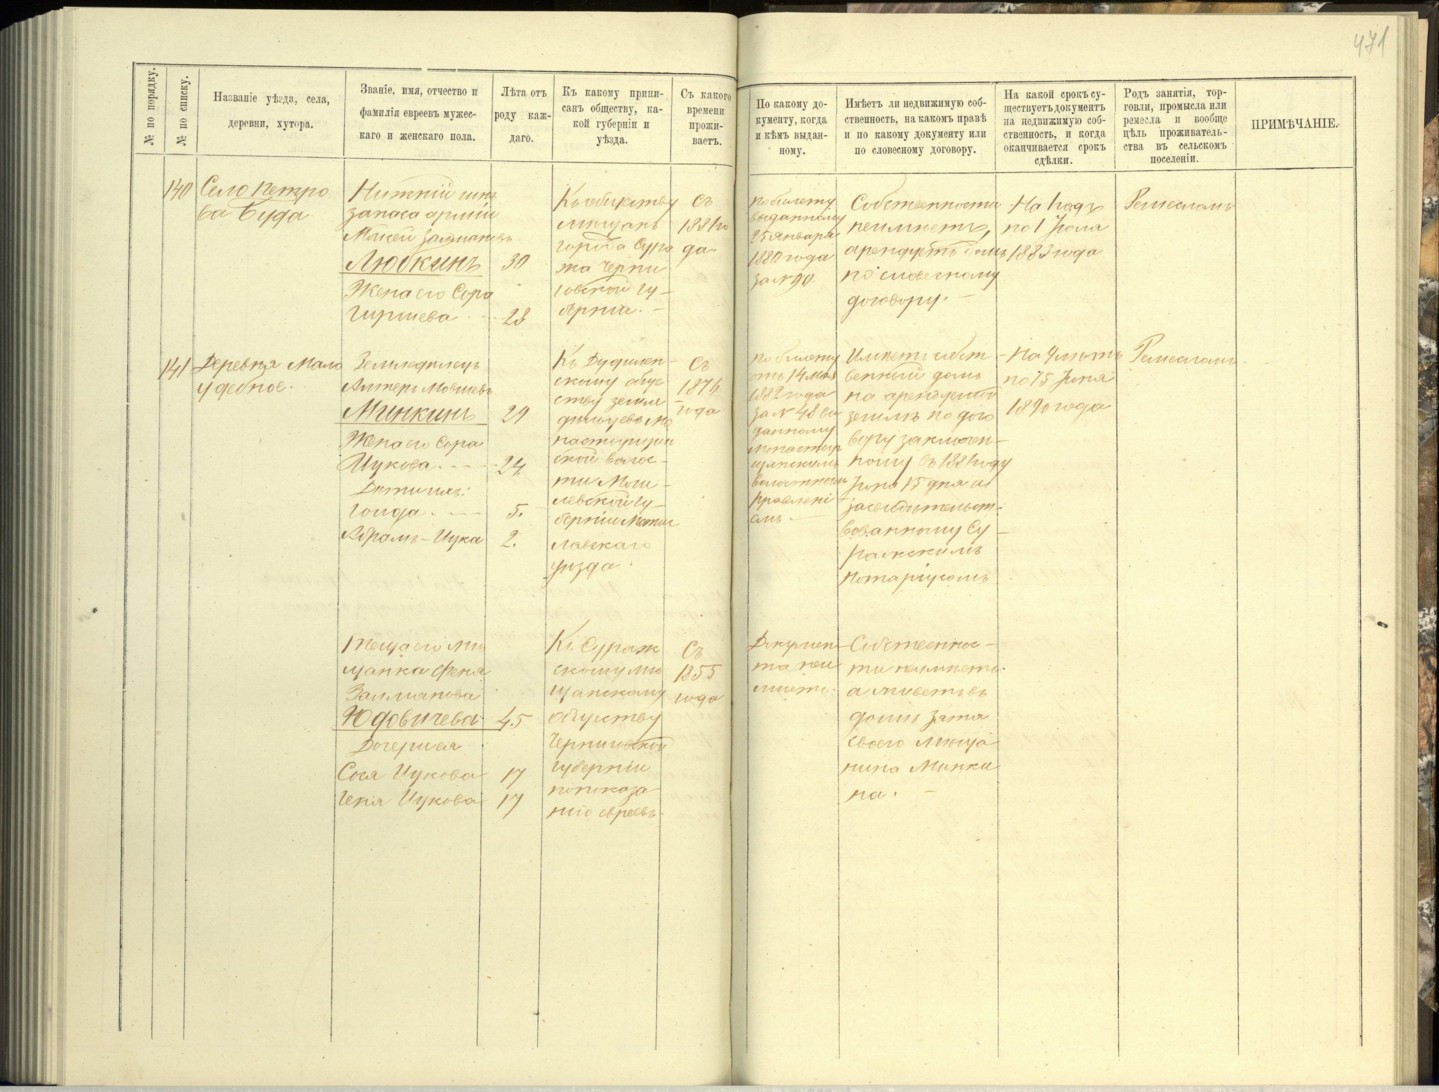 471
№ по порядку.
№ по списку.
Названіе уѣзда, села,
деревни, хутора.
Званіе, имя, отчество и
фамилія евреевъ мужес-
каго и женскаго пола.
Лѣта отъ
роду каж-
даго.
Къ какому припи-
санъ обществу, ка-
кой губерніи и
уѣзда.
Съ какого
времени
прожи-
ваетъ.
По какому до-
кументу, когда
и кѣмъ выдан-
ному.
Имѣетъ ли недвижимую соб-
ственность, на какомъ правѣ
и по какому документу или
по словесному договору.
На какой срокъ су-
ществуетъ документъ
на недвижимую соб-
ственность, и когда
оканчивается срокъ
сдѣлки.
Родъ занятія, тор-
говли, промысла или
ремесла и вообще
цѣль проживатель-
ства въ сельскомъ
поселеніи.
ПРИМѢЧАНІЕ.
140
Село Петро
ва Буда
Нижній чинъ
запаса арміи
Мовсей Залмановъ
Любкинъ
30
Жена его Сора
Гиршева
28
Къ обществу
мѣщанъ
города Сура
жа Черни
говской гу-
берніи.
Съ
1881 го
да.
По билету
выданному
25 января
1880 года
за № 90
Собственности
неимѣетъ,
арендуетъ домъ
по словесному
договору.
На 1 годъ
по 1 Іюля
1883 года
Ремесломъ
141
Деревня Мало
удебное.
Земледѣлецъ
Алтеръ Мовшевъ
Минкинъ
29
Жена его Сора
Ицкова
24
Дѣти ихъ:
5.
Абрамъ-Ицка
2.
скому обще
ству земле
дѣльцевъ Мо
настырщин
ской волос-
ти Моги-
левской гу-
берніи Мстис
лавскаго
уѣзда.
Съ
1876
года
По билету
отъ 14 мая
1882 года
за № 48 вы
данному
Монастыр
щинскимъ
Волостнымъ
Правлені
емъ.
Имѣетъ собст-
венный домъ
на арендной
землѣ по дого
вору заключен-
ному съ 1881 году
Іюня 15 дня и
засвидѣтельст-
вованному Су-
ражскимъ
нотаріусомъ
по 15 Іюня
1890 года
Ремесломъ.
Теща его Мѣ
щанка Феня
Залманова
Юдовичева
45
Дочери ея
Сося Ицкова
17
Геня Ицкова
17
Къ Сураж
скому мѣ
щанскому
обществу
Черниговской
губерніи
попоказа-
нію евреевъ.
Съ
1855
года
Докумен-
та неи
мѣетъ.
Собственнос-
ти неимѣетъ.
а живетъ въ
домѣ зятя
своего мѣща
нина Минки
на.